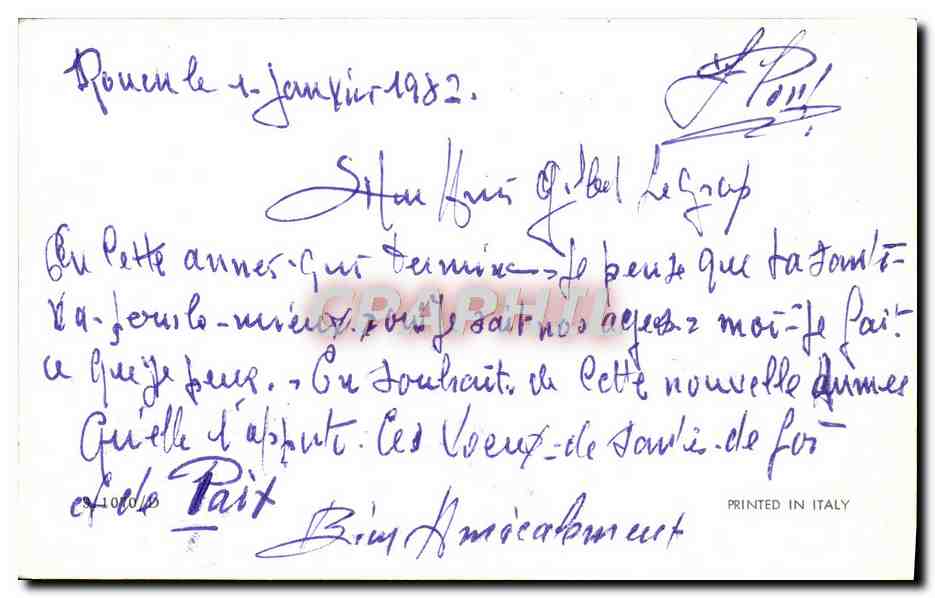 Rouen le 1. Janvier 1982.
J Pons
Mon Ami Gilbert Legrap
En Cette annes. qui termine je pense que ta santé
va pour le mieux pour je sait nos ages moi Je fait
ce que je peux. En souhait de Cette nouvelle annee
Qu'elle t'apporte Ces Voeux de santé de Foi
et de Paix
S/1070/D
PRINTED IN ITALY
Bien Amicalement
CPAPHIL